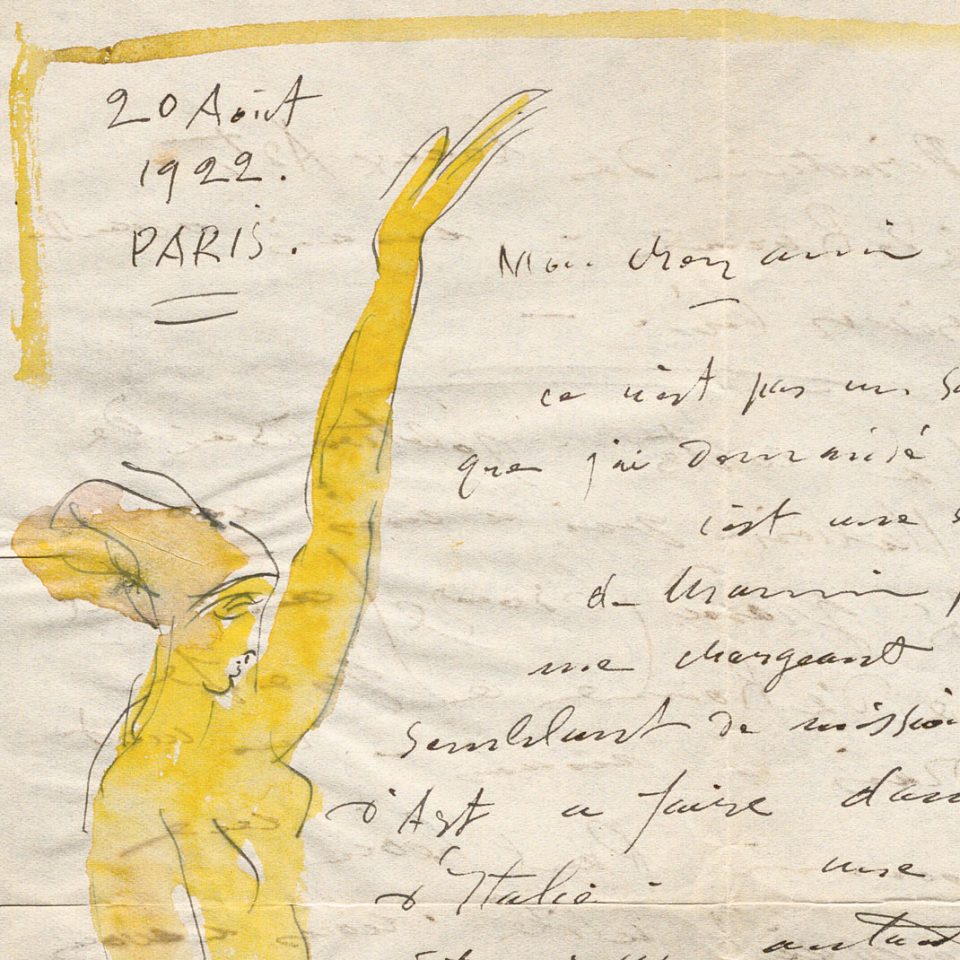 20 Août
1922.
PARIS.
Mon cher ami
ce n'est pas un
que j'ai demandé
c'est une
de
me chargeant
semblant de mission
d'Art a faire dans
une
d'Italie
autant